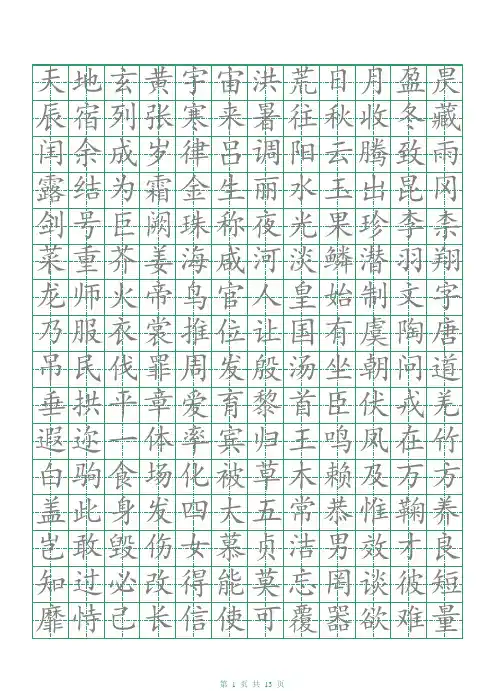 天地玄黄宇宙洪荒日月盈昃
辰宿列张寒来暑往秋收冬藏
闰余成岁律吕调阳云腾致雨
露结为霜金生丽水玉出昆冈
剑号巨阙珠称夜光果珍李柰
菜重芥姜海咸河淡鳞潜羽翔
龙师火帝鸟官人皇始制文字
乃服衣裳推位让国有虞陶唐
吊民伐罪周发殷汤坐朝问道
垂拱平章爱育黎首臣伏戎羌
遐迩一体率宾归王鸣凤在竹
白驹食场化被草木赖及万方
盖此身发四大五常恭惟鞠养
岂敢毁伤女慕贞洁男效才良
知过必改得能莫忘罔谈彼短
靡恃己长信使可覆器欲难量
第 1 页 共 13 页